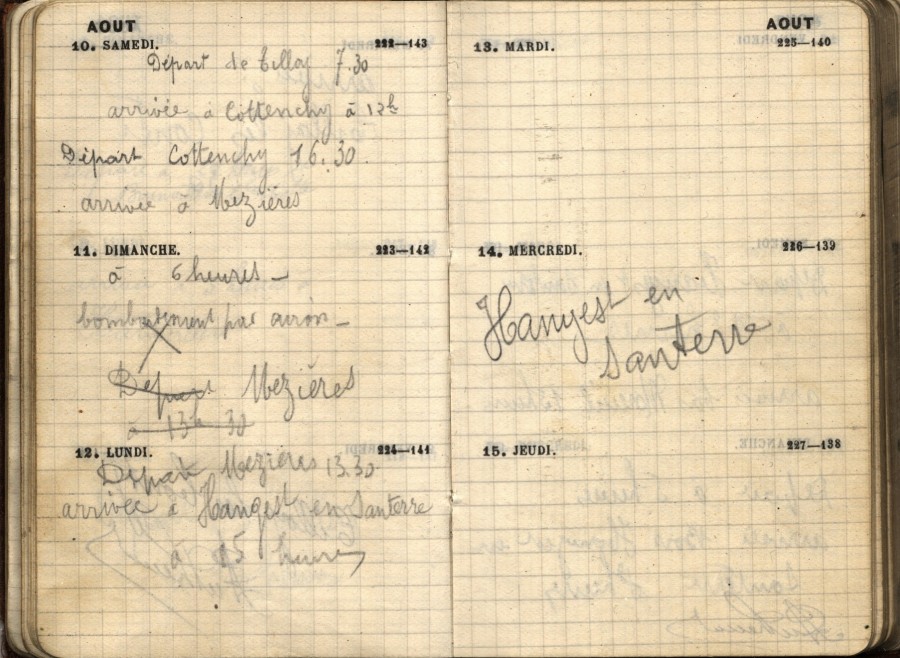 AOUT
10. SAMEDI. 222—143
Départ de Tilloy 7.30
arrivée à Cottenchy à 12h
Départ Cottenchy 16.30
arrivée à Mezières
11. DIMANCHE. 223—142
à 6 heures —
bombardement par avion —
Départ Mezières
à 13h 30
12. LUNDI. 224—141
Départ Mezières 13.30
arrivée à Hangest en Santerre
à 15 heures
AOUT
13. MARDI. 225—140
14. MERCREDI. 226—139
Hangest en
Santerre
15. JEUDI. 227—138